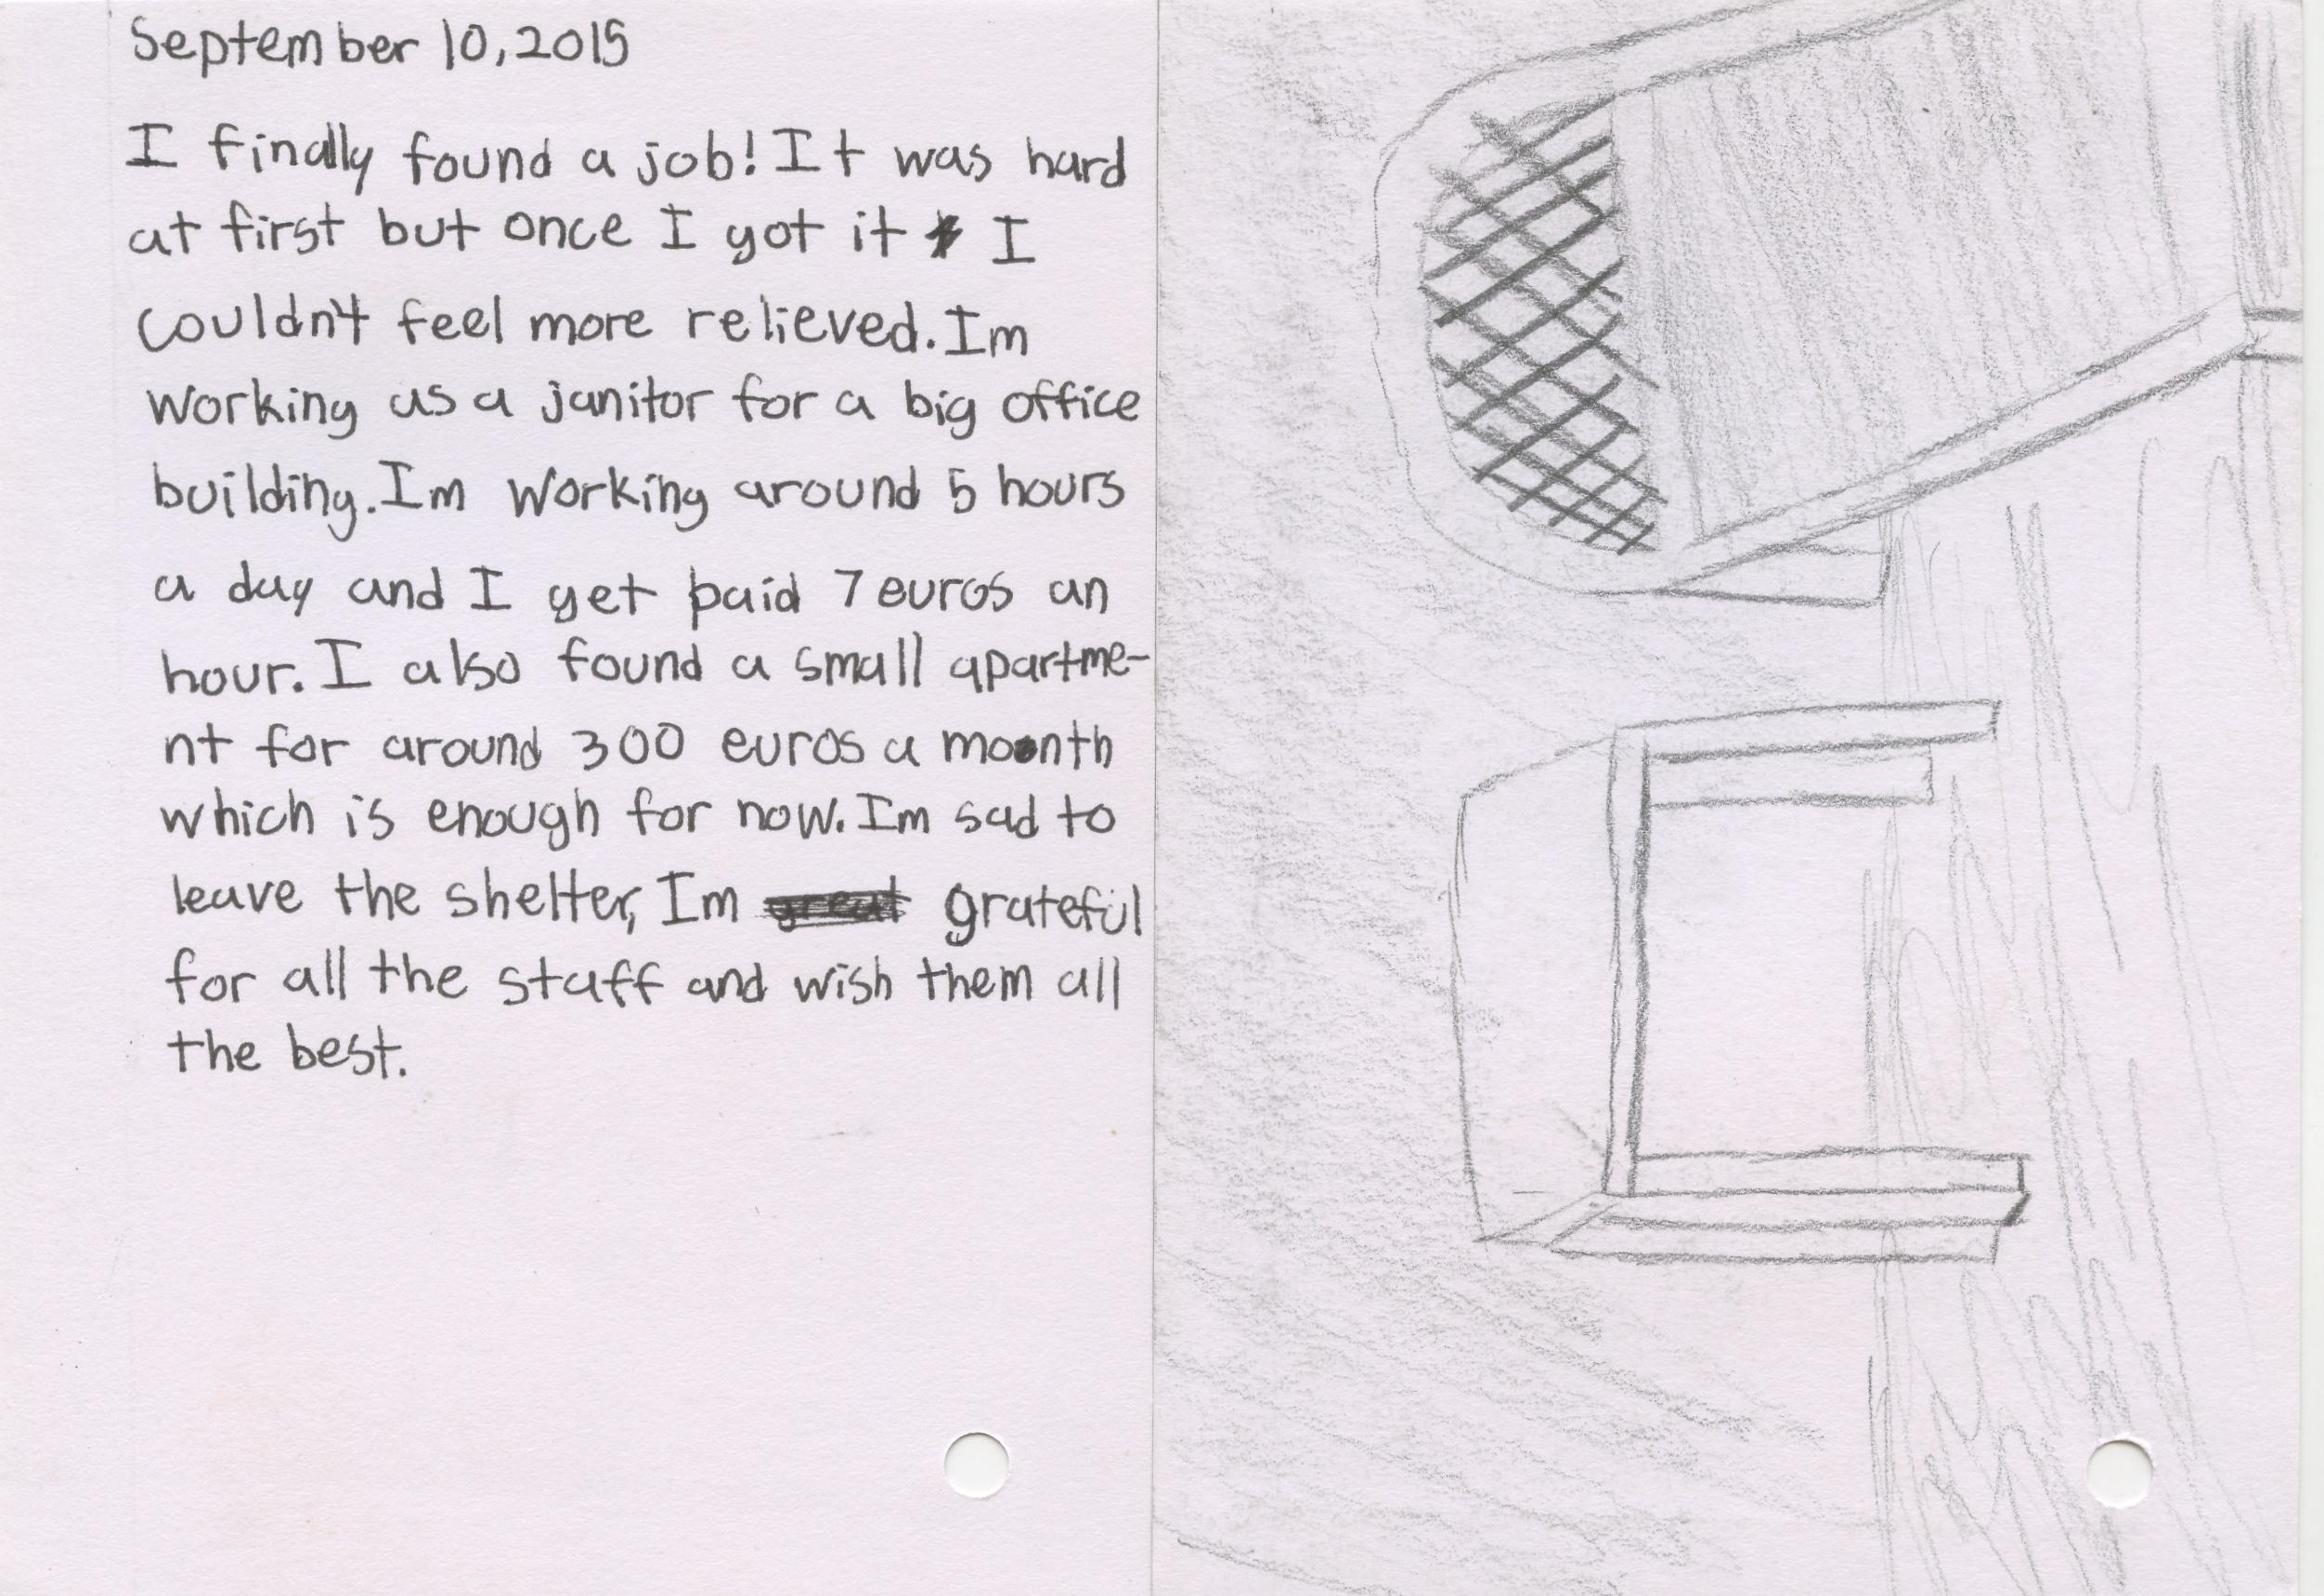 September 10, 2015
I finally found a job! It was hard
at first but once I got it I
couldn't feel more relieved. Im
working as a janitor for a big office
building. Im working around 5 hours
a day and I get paid 7 euros an
hour. I also found a small apartme-
nt for around 300 euros a month
which is enough for now. Im sad to
leave the shelter, Im great grateful
for all the staff and wish them all
the best.